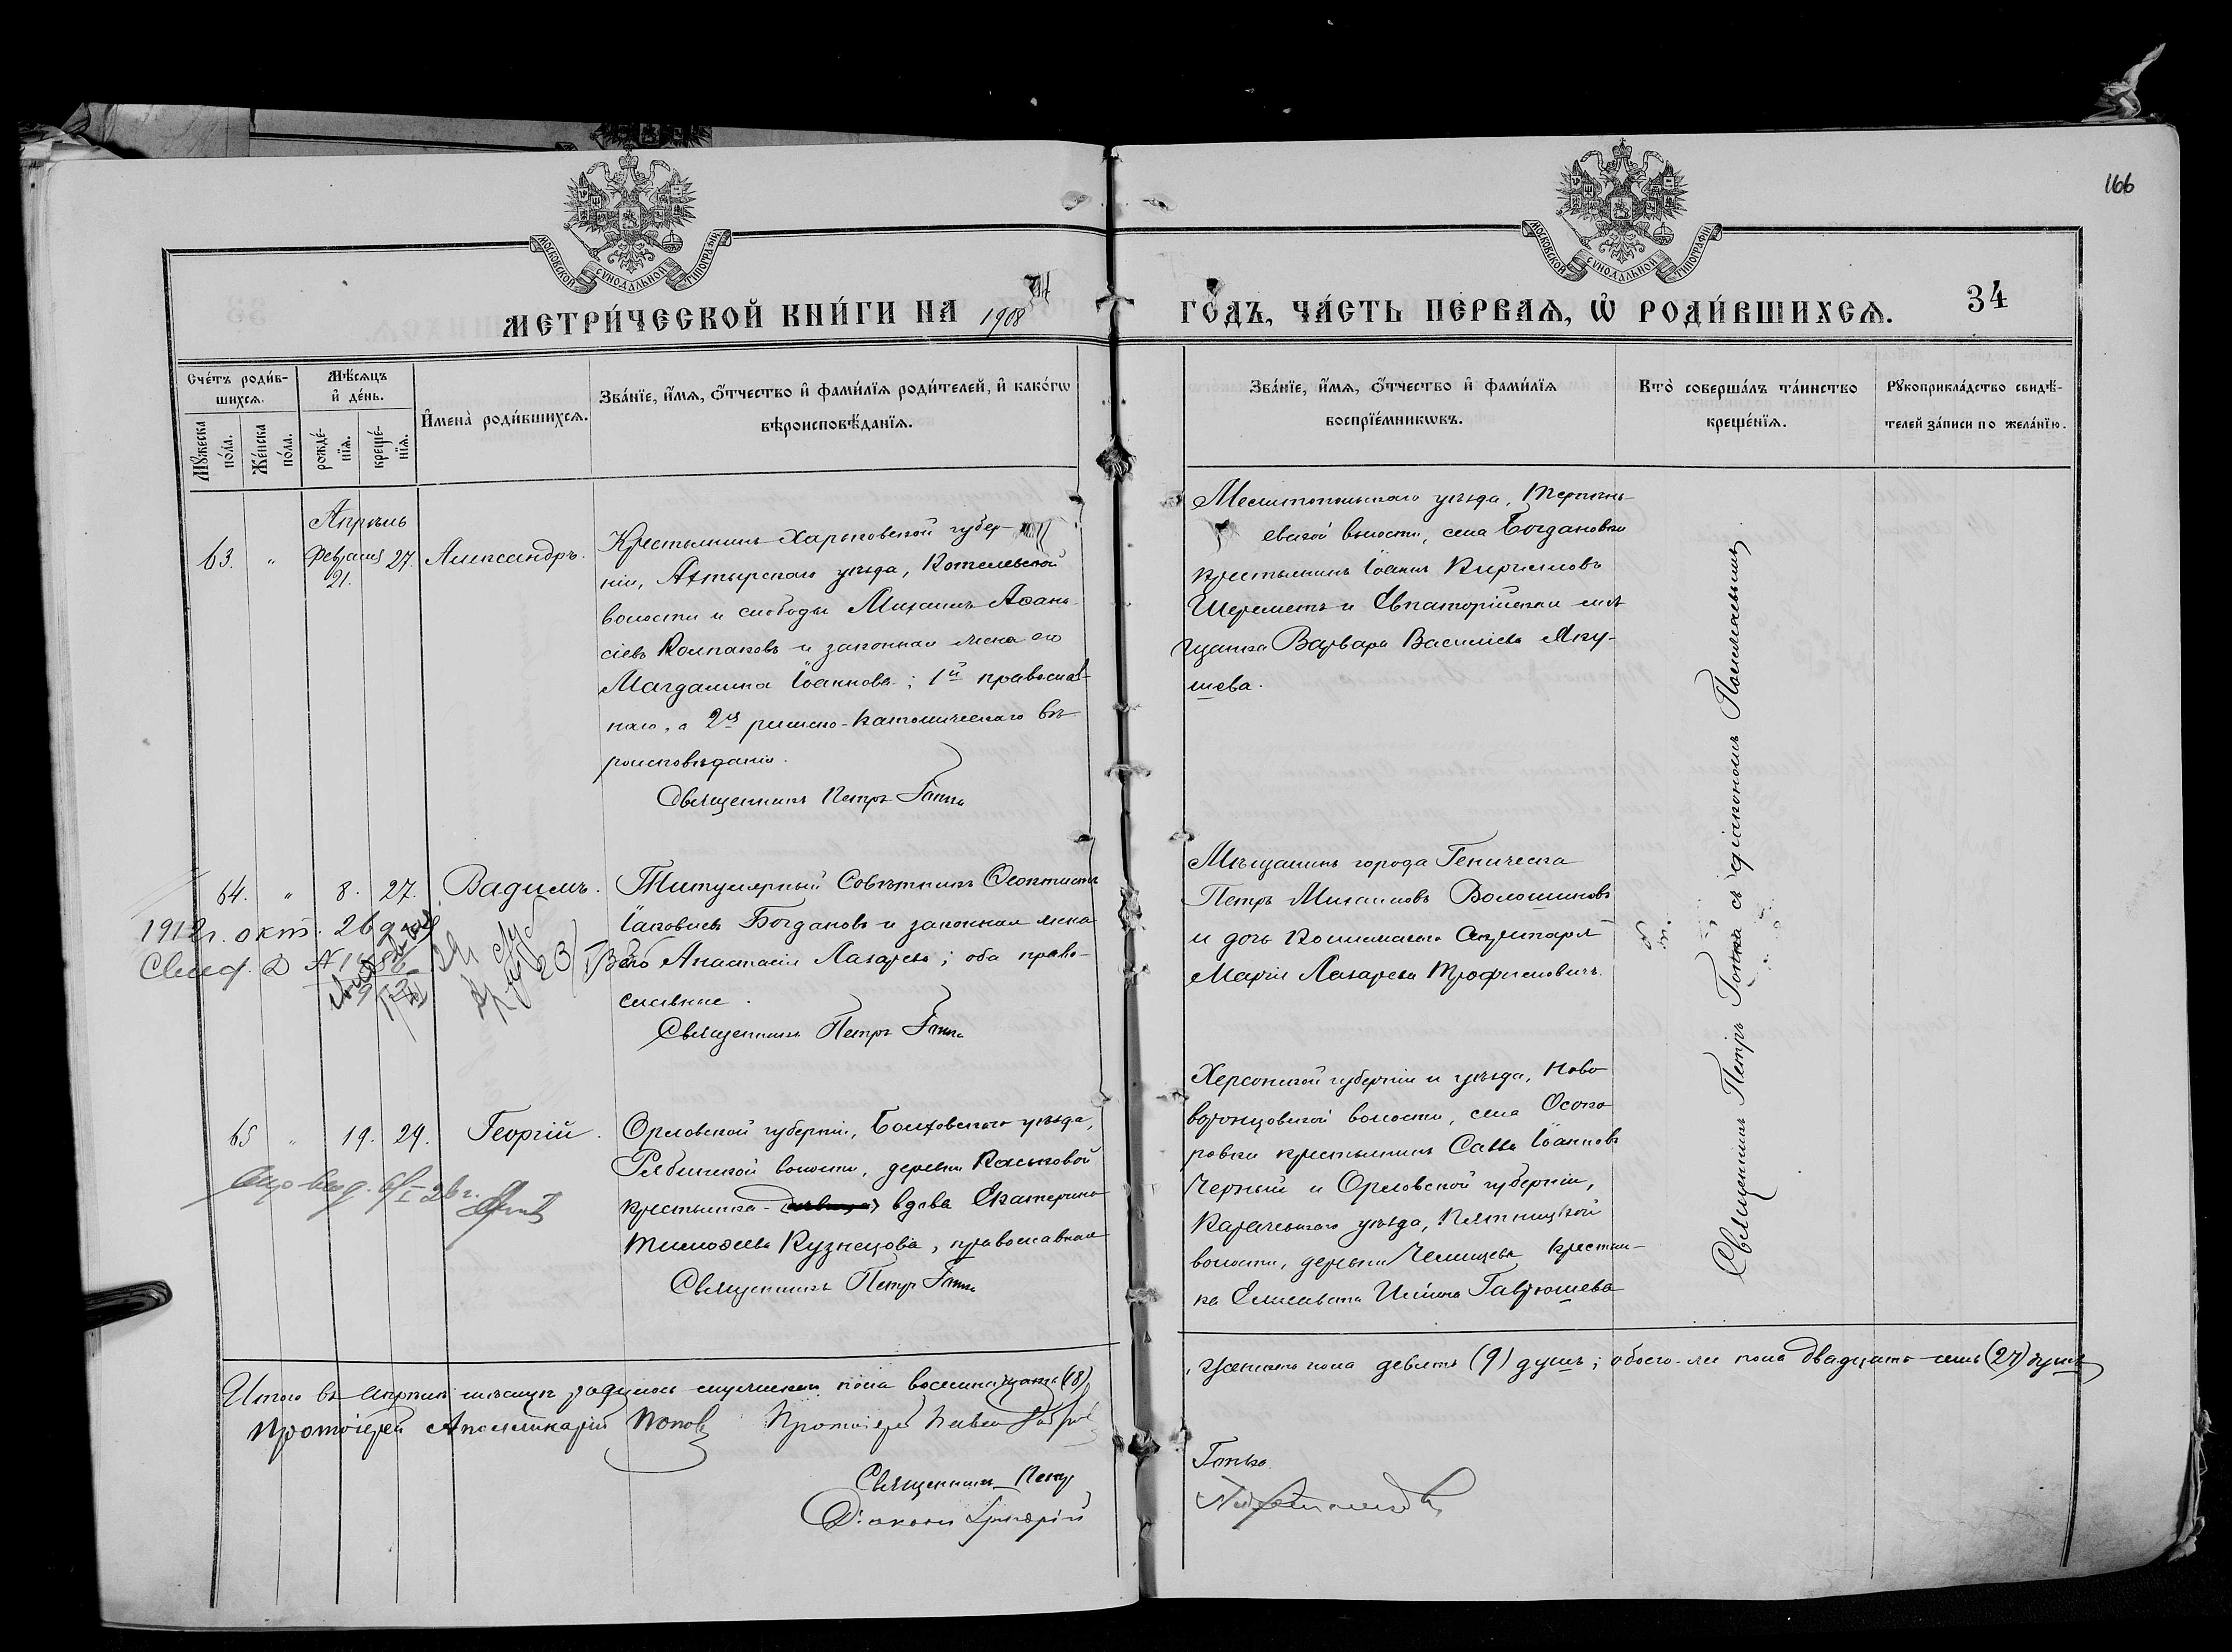 166
МОСКОВСКОЙ СѴНОДАЛЬНОЙ ТИПОГРАФІИ
МОСКОВСКОЙ СѴНОДАЛЬНОЙ ТИПОГРАФІИ
МЕТРИ́ЧЕСКОЙ КНИ́ГИ НА 1908
ГО́ДЪ, ЧА́СТЬ ПЕ́РВАѦ, Ѡ҆ РОДИ́ВШИХСѦ.
34
Сче́тъ роди́в-
шихсѧ.
Мѹ́жеска по́ла.
Же́нска по́ла.
Мѣ́сѧцъ и҆ де́нь.
рожде́-
нїѧ.
креще́-
нїѧ.
И҆мена̀ роди́вшихсѧ.
Зва́нїе, и҆́мѧ, ѻ҆́тчество и҆ фами́лїѧ роди́телей, и҆ како́гѡ
вѣроисповѣ́данїѧ.
Зва́нїе, и҆́мѧ, ѻ҆́тчество и҆ фами́лїѧ
воспрїе́мникѡвъ.
Кто̀ соверша́лъ та́инство
креще́нїѧ.
Рѹкоприкла́дство свидѣ́-
телей за́писи по жела́нїю.
Апрѣль
63.
"
Февраля 21.
27.
Александръ.
Крестьянинъ Харьковской губер-
ніи, Ахтырскаго уѣзда, Котелевской
волости и слободы Михаилъ Аѳана-
сіевъ Колпаковъ и законная жена его
Магдалина Іоаннова; 1й православ-
наго, а 2я римско-католическаго вѣ-
роисповѣданія.
Священникъ Петръ Гопка
Мелитопольскаго уѣзда, Терпѣнь-
евской волости, села Богдановки
крестьянинъ Іоаннъ Кирилловъ
Шереметъ и Евпаторійская мѣ-
щанка Варвара Васильева Яку-
шева.
64.
"
8.
27.
Вадимъ.
Титулярный Совѣтникъ Ѳеоктистъ
Іаковлевъ Богдановъ и законная жена
его Анастасія Лазарева; оба право-
славные.
Священникъ Петръ Гопка
1912г. окт. 26 дня
Мѣщанинъ города Геническа
Петръ Михаиловъ Волошиновъ
и дочь Коллежскаго Секретаря
Марія Лазарева Трофимовичъ.
65
"
19.
29.
Георгій.
Орловской губерніи, Болховскаго уѣзда,
Рябинской волости, деревни Кальковой
крестьянка вдова Екатерина
Тимоѳеева Кузнецова, православная
Священникъ Петръ Гопка
Херсонской губерніи и уѣзда, Ново-
воронцовской волости, села Осоко-
ровки крестьянинъ Савва Іоанновъ
Черный и Орловской губерніи,
Карачевскаго уѣзда, Пятницкой
волости, деревни крестьян-
ка Елисавета Ильина Гаврюшева
Священникъ Петръ Гопка съ діакономъ
Итого въ апрѣлѣ мѣсяцѣ родилось мужескаго пола восемнадцать (18)
, женскаго пола девять (9) душъ; обоего-же пола двадцать семь (27) душъ
Протоіерей Аполлинарій Поповъ
Протоіерей
Священникъ Петръ
Гопка.
Діаконъ Григорій